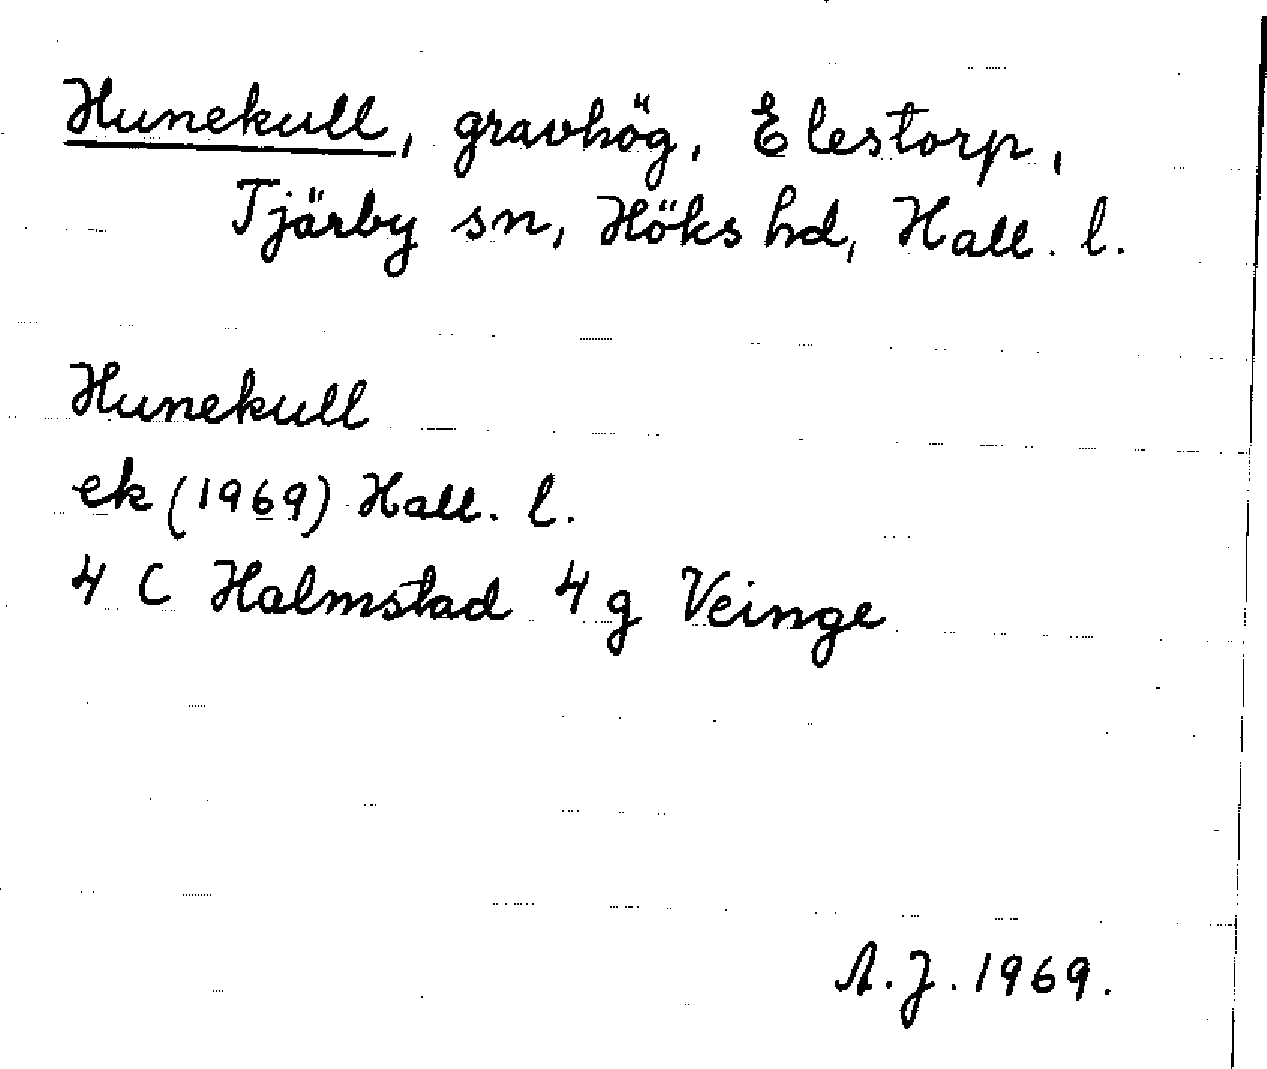 Hunekull, gravhög, Elestorp,
Tjärby sn, Höks hd, Hall. l.
Hunekull
ek (1969) Hall. l.
4 C Halmstad 4 g Veinge
A. J. 1969.